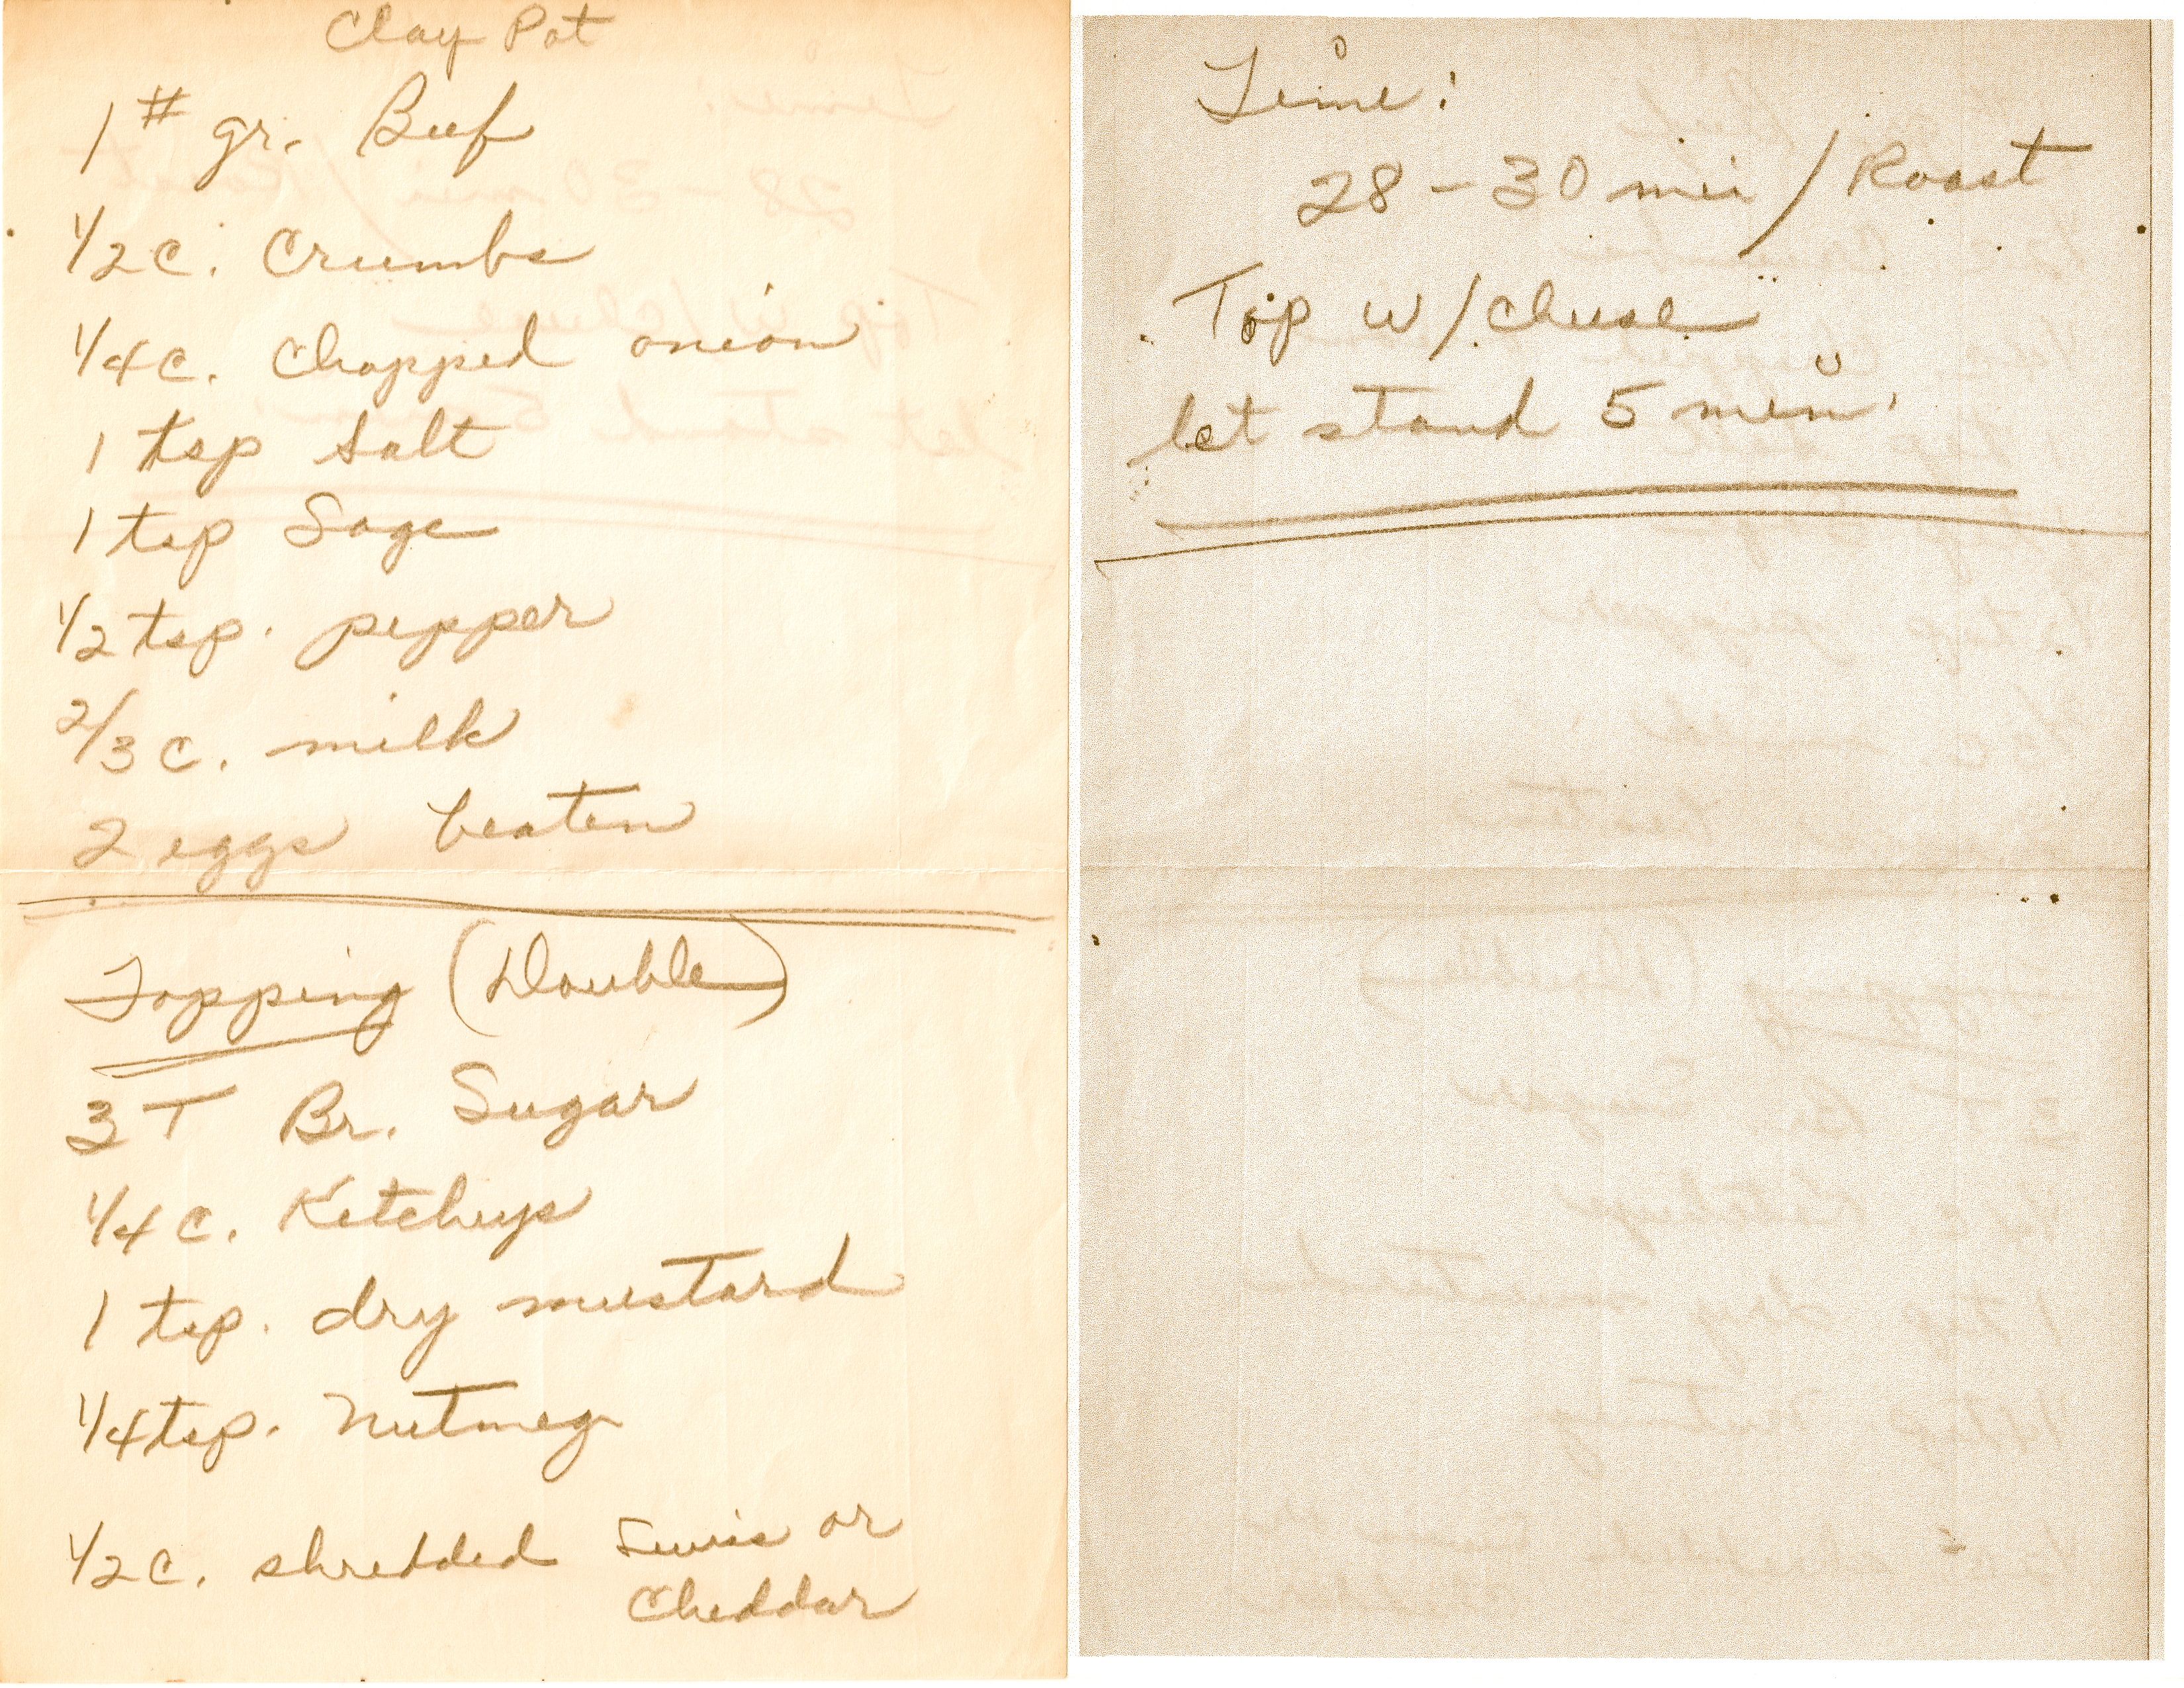 Clay Pot
1# gr. Beef
1/2 c. Crumbs
1/4 c. Chopped onion
1 tsp Salt
1 tsp Sage
1/2 tsp. pepper
2/3 c. milk
2 eggs beaten
Topping (Double)
3 T Br. Sugar
1/4 c. Ketchup
1 tsp. dry mustard
1/4 tsp. Nutmeg
1/2 c. shredded Swiss or
Cheddar
Time:
28-30 min / Roast
Top w/cheese
let stand 5 min.